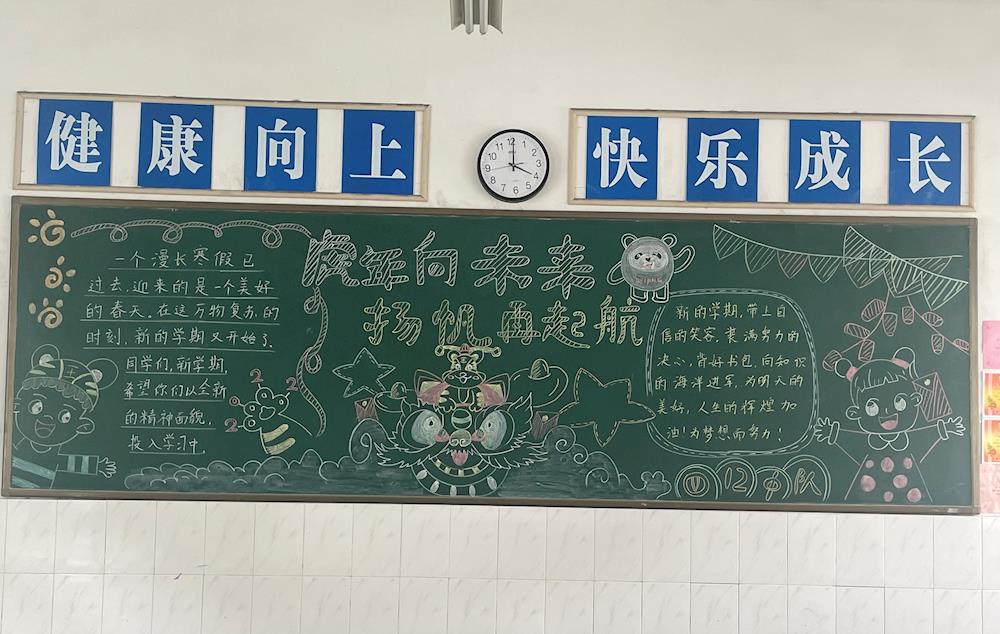 健康向上
快乐成长
虎年向未来
扬帆再起航
一个漫长寒假已
过去，迎来的是一个美好
的春天。在这万物复苏的
时刻，新的学期又开始了。
同学们，新学期，
希望你们以全新
的精神面貌，
投入学习中
2022
新的学期，带上自
信的笑容，装满努力的
决心，背好书包，向知识
的海洋进军，为明天的
美好，人生的辉煌加
油！为梦想而努力！
12中队
12
1
2
3
4
5
6
7
8
9
10
11